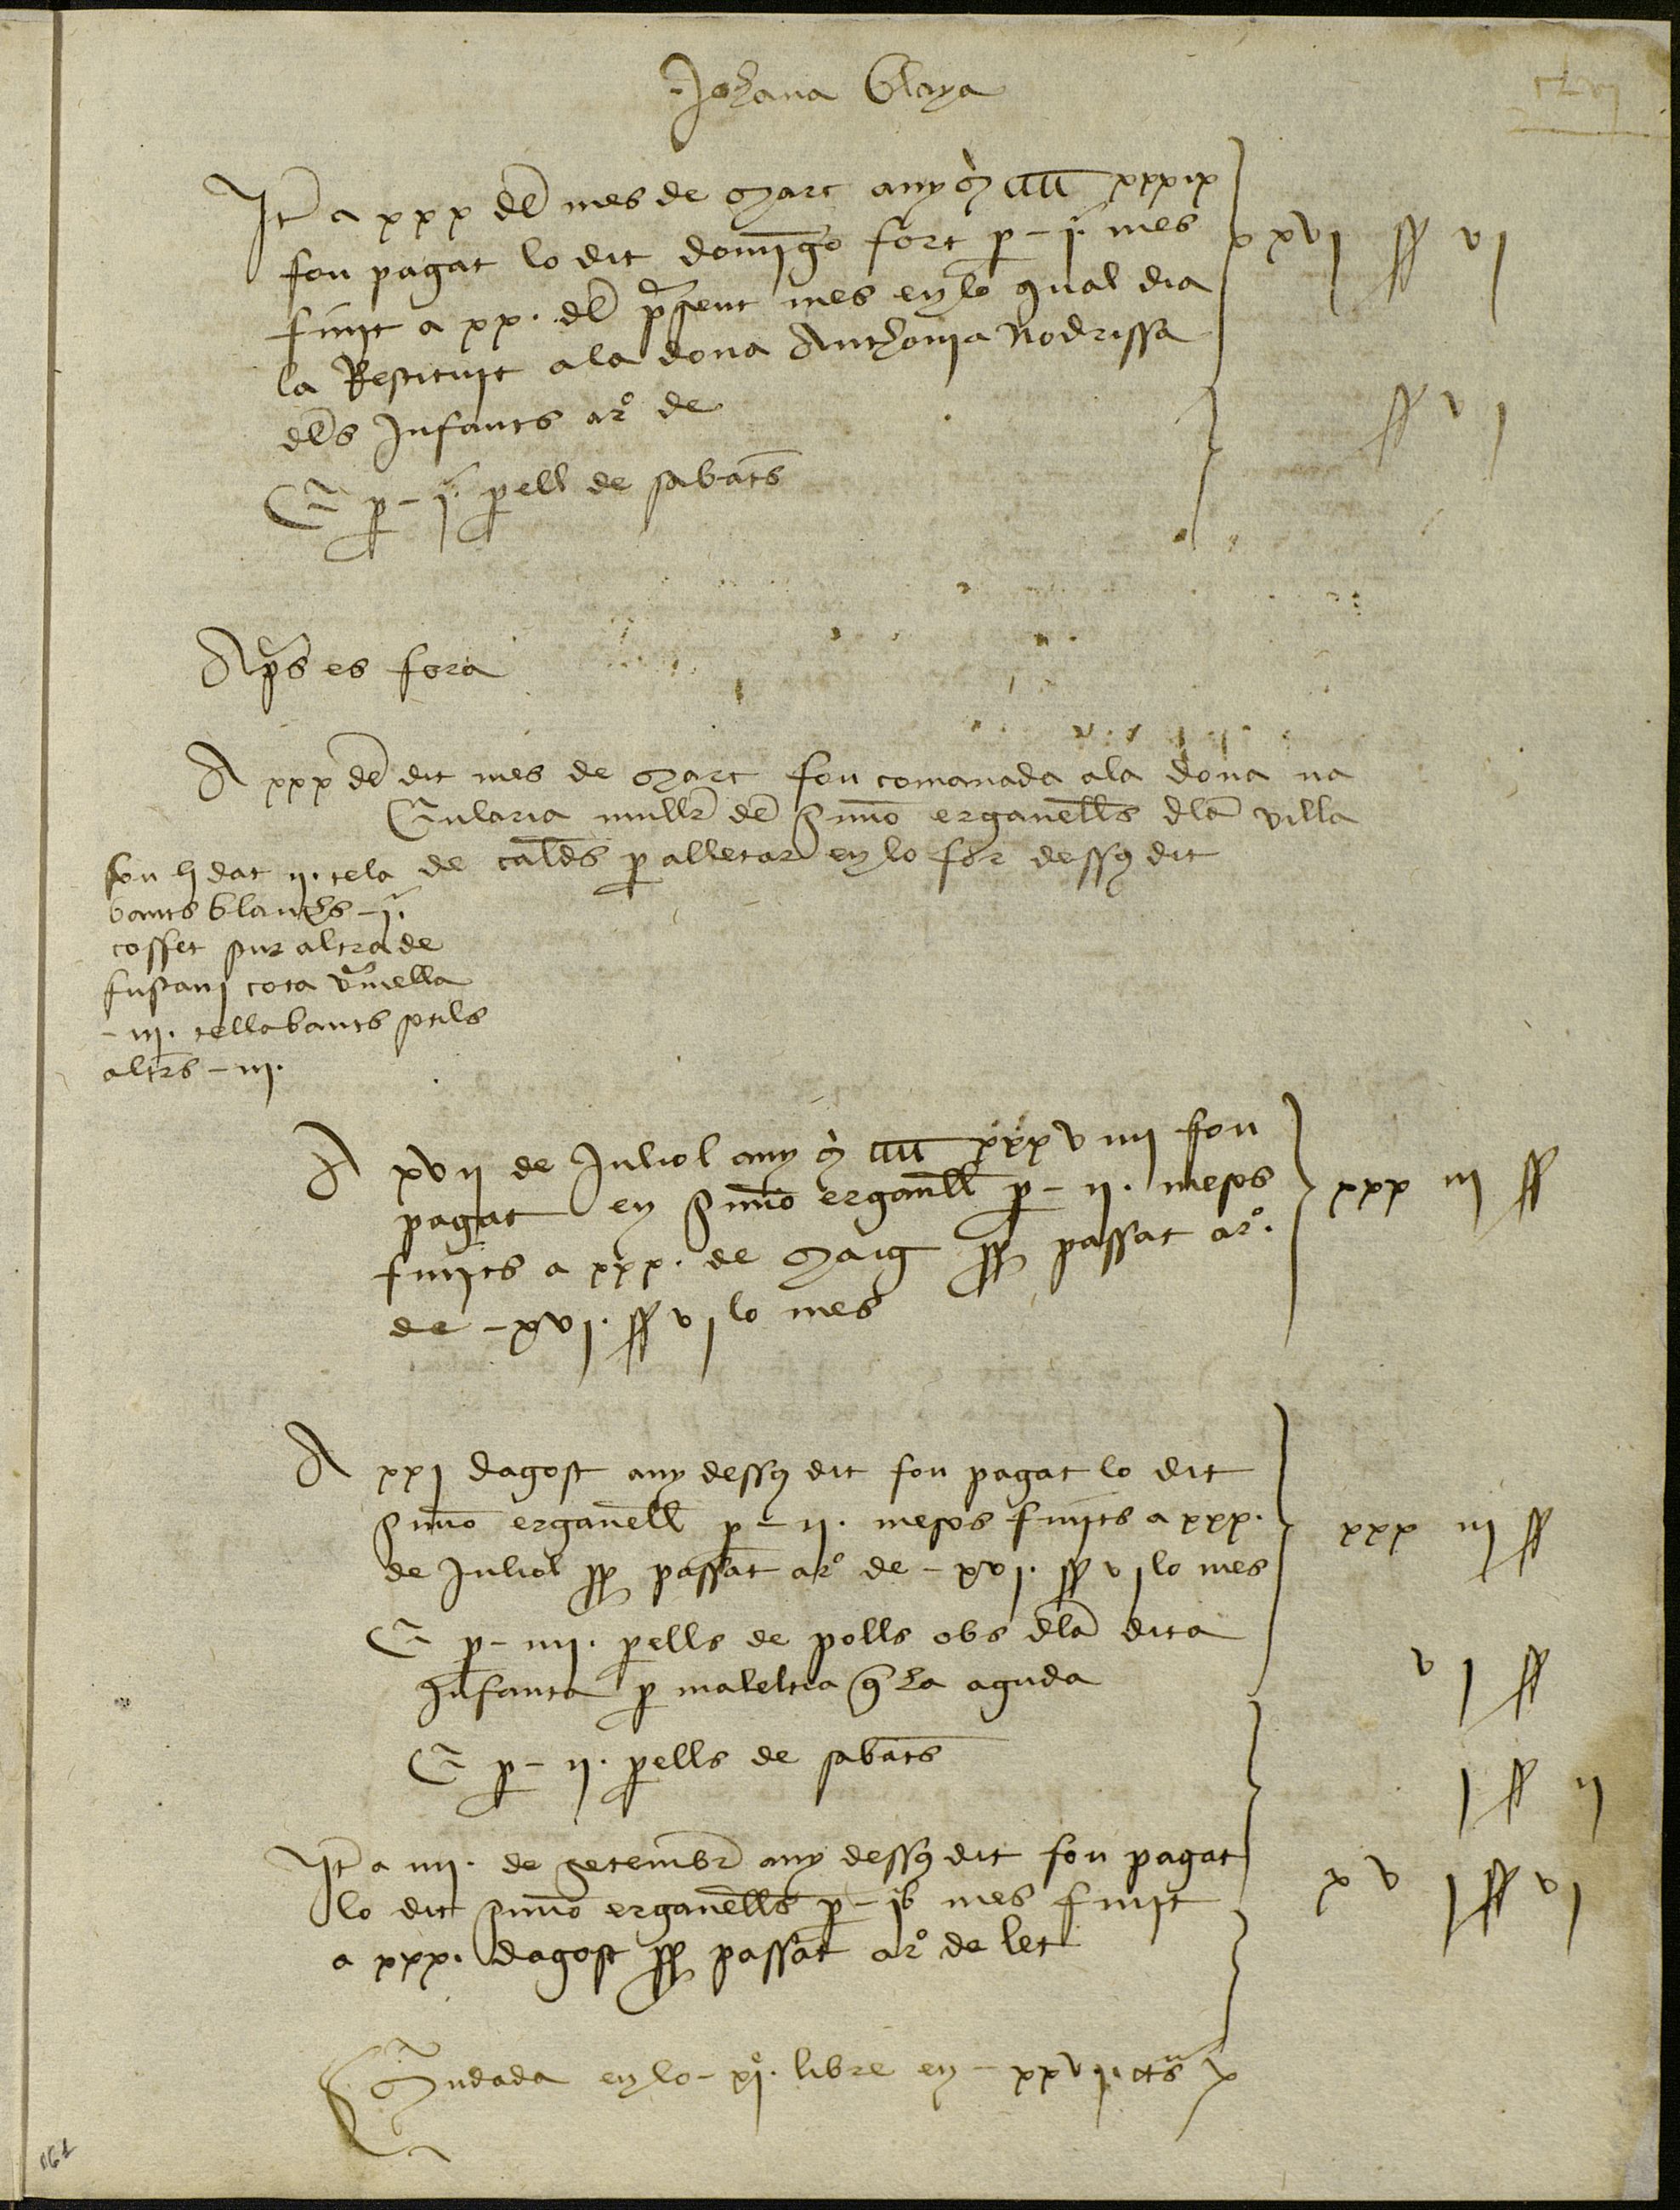 Johana Blaya
clvi
It a xxx del mes de Març any M CCCC xxxix
fou pagat lo dit domingo fort p - i. mes
finit a xx. del present mes en lo qual dia
la Restituit a la dona Anthonia Nodrissa
dels Infants a ro de
xxvi ss vi
E p - i. pell de sabats
i ss vi
Apres es fora
A xxx del dit mes de Març fou comanada a la dona na
Eularia muller den Simo erganells dla villa
de calds p alletar en lo for dessus dit
fou li dat ii. tela
bants blanchs - i.
cosset sur altra de
fustani cota vermella
- iii. tellabants sotils
altrs - iii.
A xvii de Juliol any M CCCC xxxviiii fou
pagat en Simo erganell p - ii. mesos
finits a xxx. de Maig pp passat a ro.
de - xvi. ss vi lo mes
xxx iii ss
A xxi dagost any dessus dit fou pagat lo dit
Simo erganell p - ii. mesos finits a xxx.
de Juliol pp passat a ro de - xvi. ss vi lo mes
xxx iii ss
E p - iiii. pells de polls obs dla dita
Infanta p maleltia que ha aguda
v i ss
E p - ii. pells de sabats
i ss ii
It a iiii. de setembr any dessus dit fou pagat
lo dit simo erganells p - i mes finit
a xxx. dagost pp passat a ro de let
xvi ss vi
Mudada en lo - xi. libre en - xxvii. cts
161